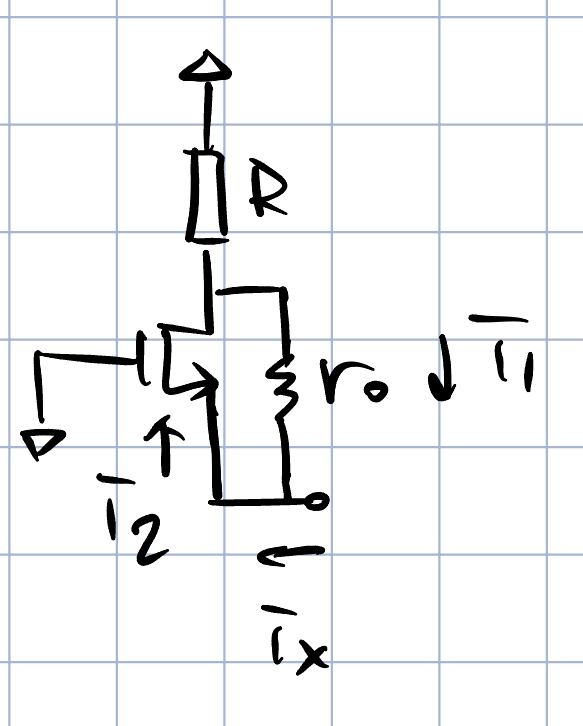 R
r₀
i₁
i₂
iₓ